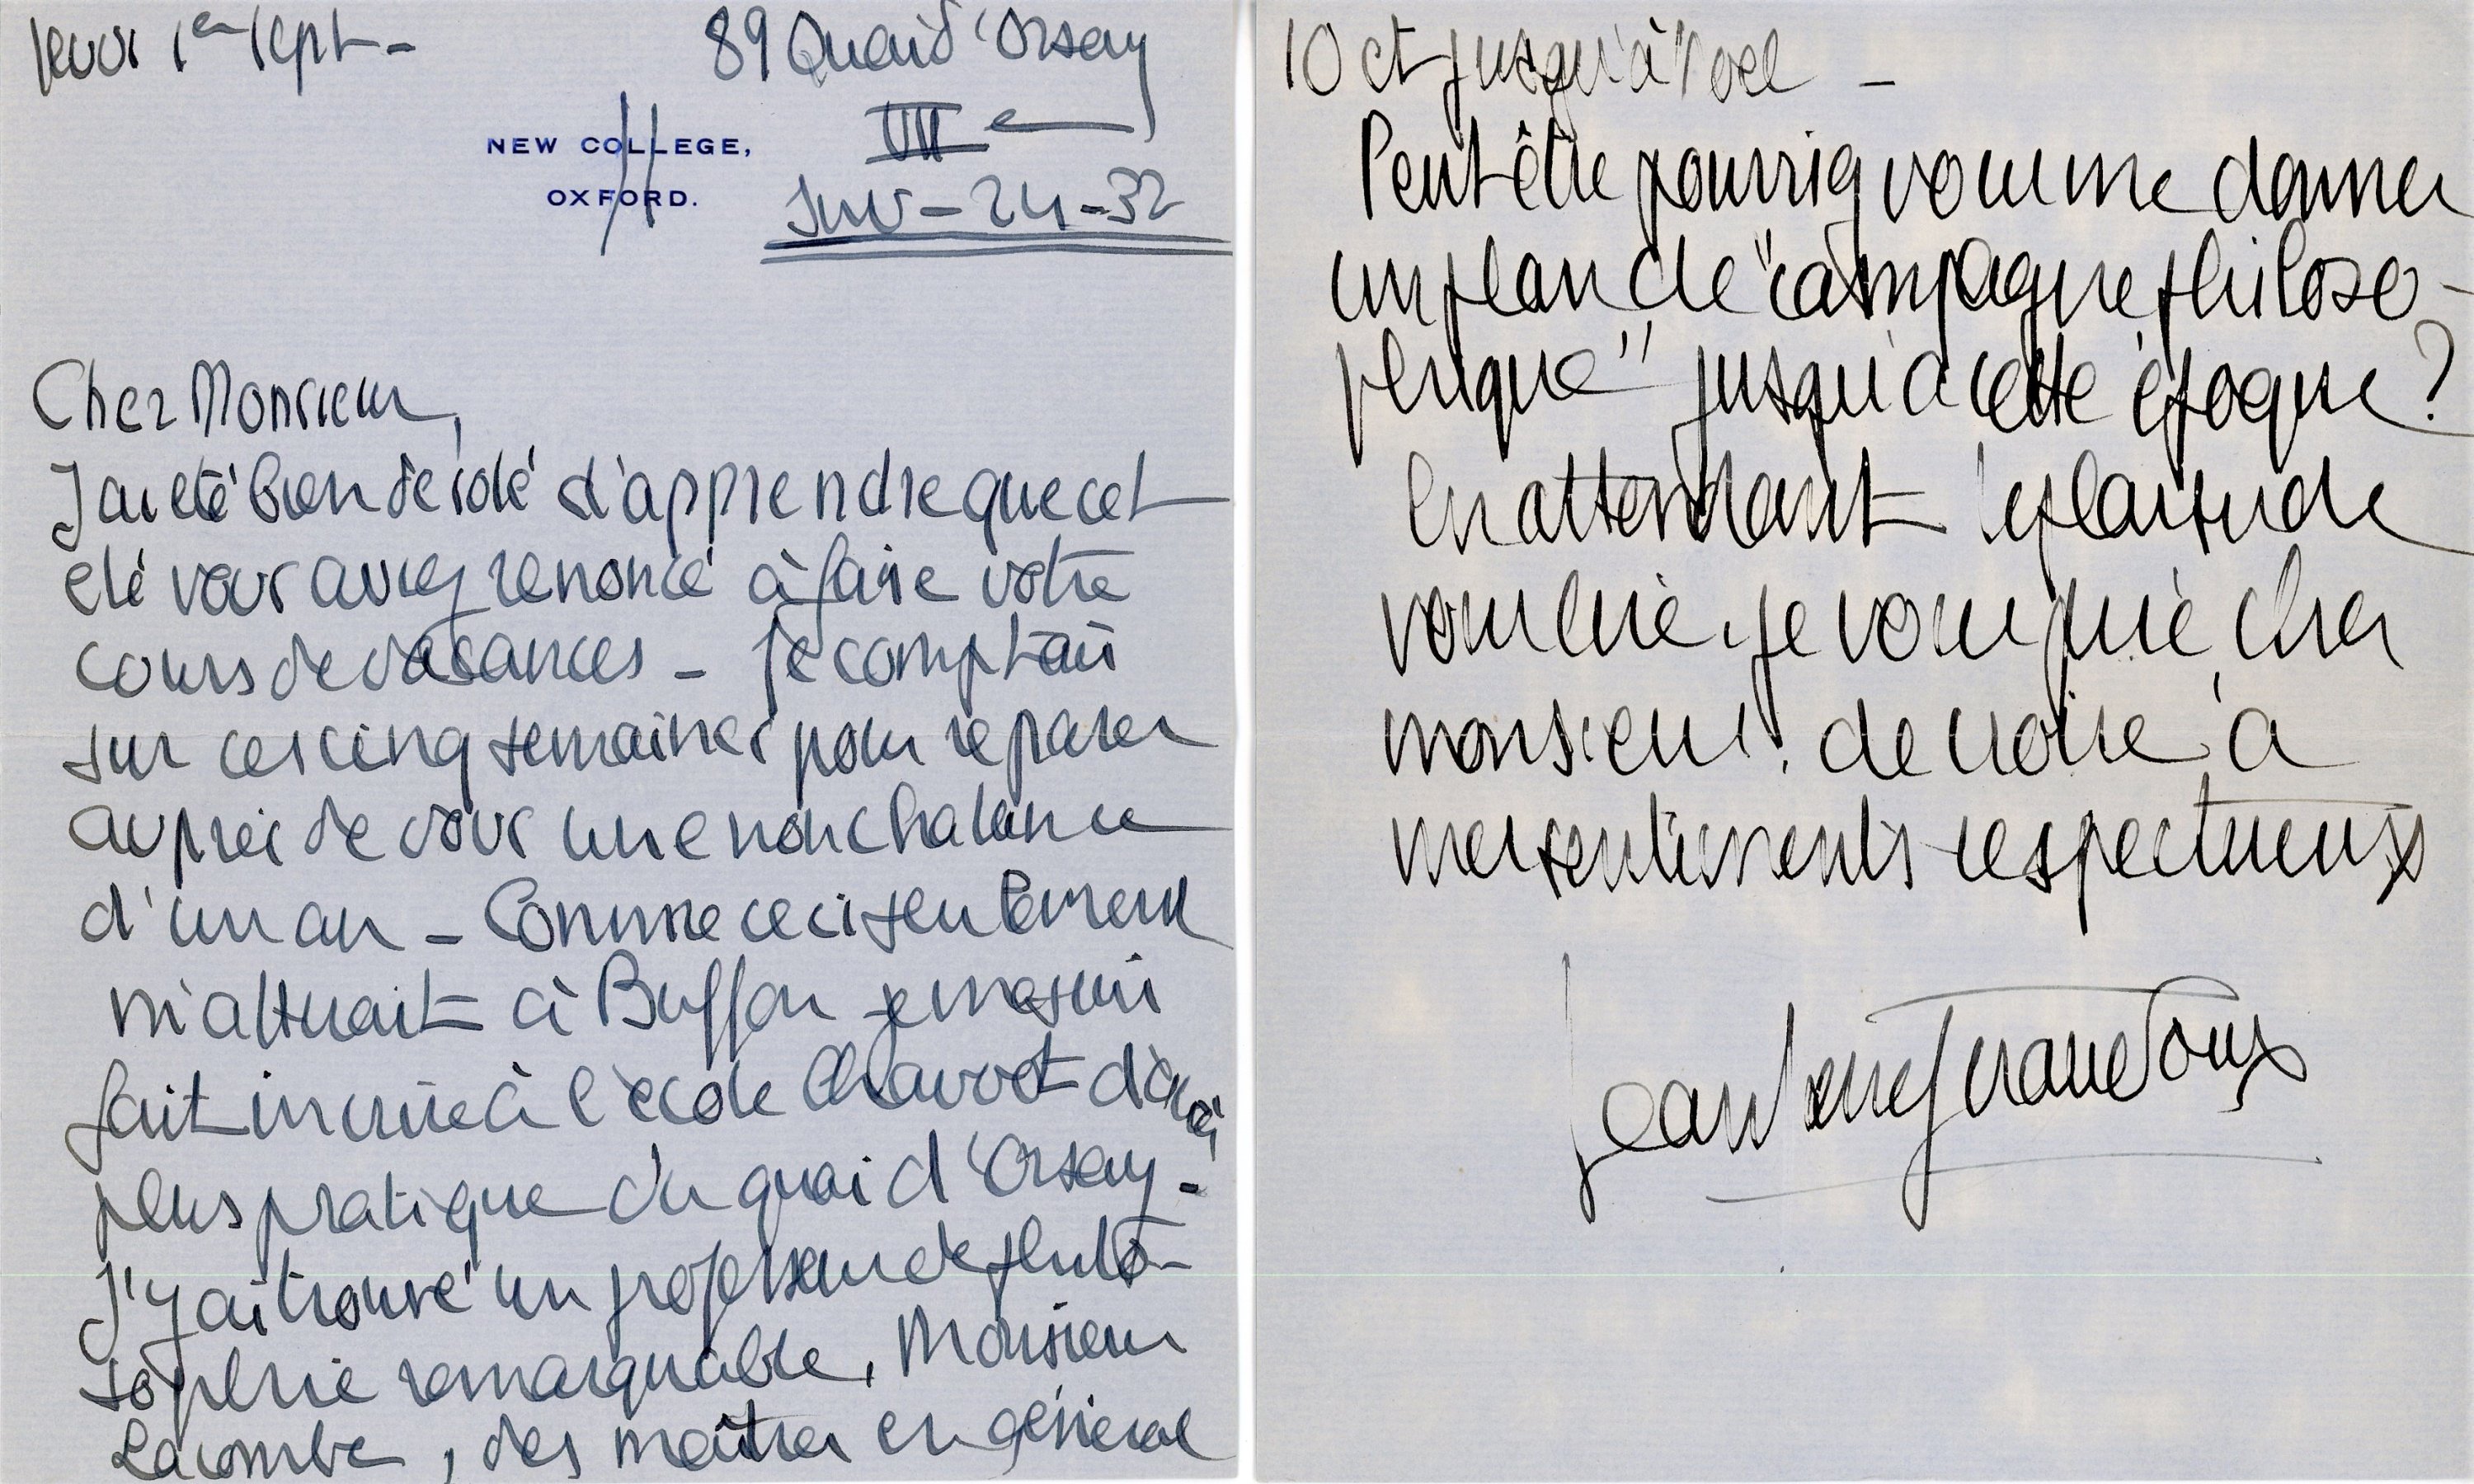 Jeudi 1er Sept -
89 Quai d'Orsay
VIIe
NEW COLLEGE,
OXFORD.
Inv - 24 - 32
Cher Monsieur,
J'ai été bien désolé d'apprendre que cet
été vous aviez renoncé à faire votre
cours de vacances - Je comptais
sur ces cinq semaines pour réparer
auprès de vous une nonchalance
d'un an - Comme ceci seulement
m'attirait à Buffon je me suis
fait inscrire à l'école d'accès
plus pratique du quai d'Orsay -
J'y ai trouvé un professeur de philo-
sophie remarquable, Monsieur
Lacombe, des maîtres en général
10 ct jusqu'à Noel -
Peut être pourriez vous me donner
un plan de "campagne philoso-
phique" jusqu'à cette époque ?
En attendant le plaisir de
vous lire, je vous prie, cher
monsieur, de croire à
mes sentiments respectueux
Jean Pierre Giraudoux